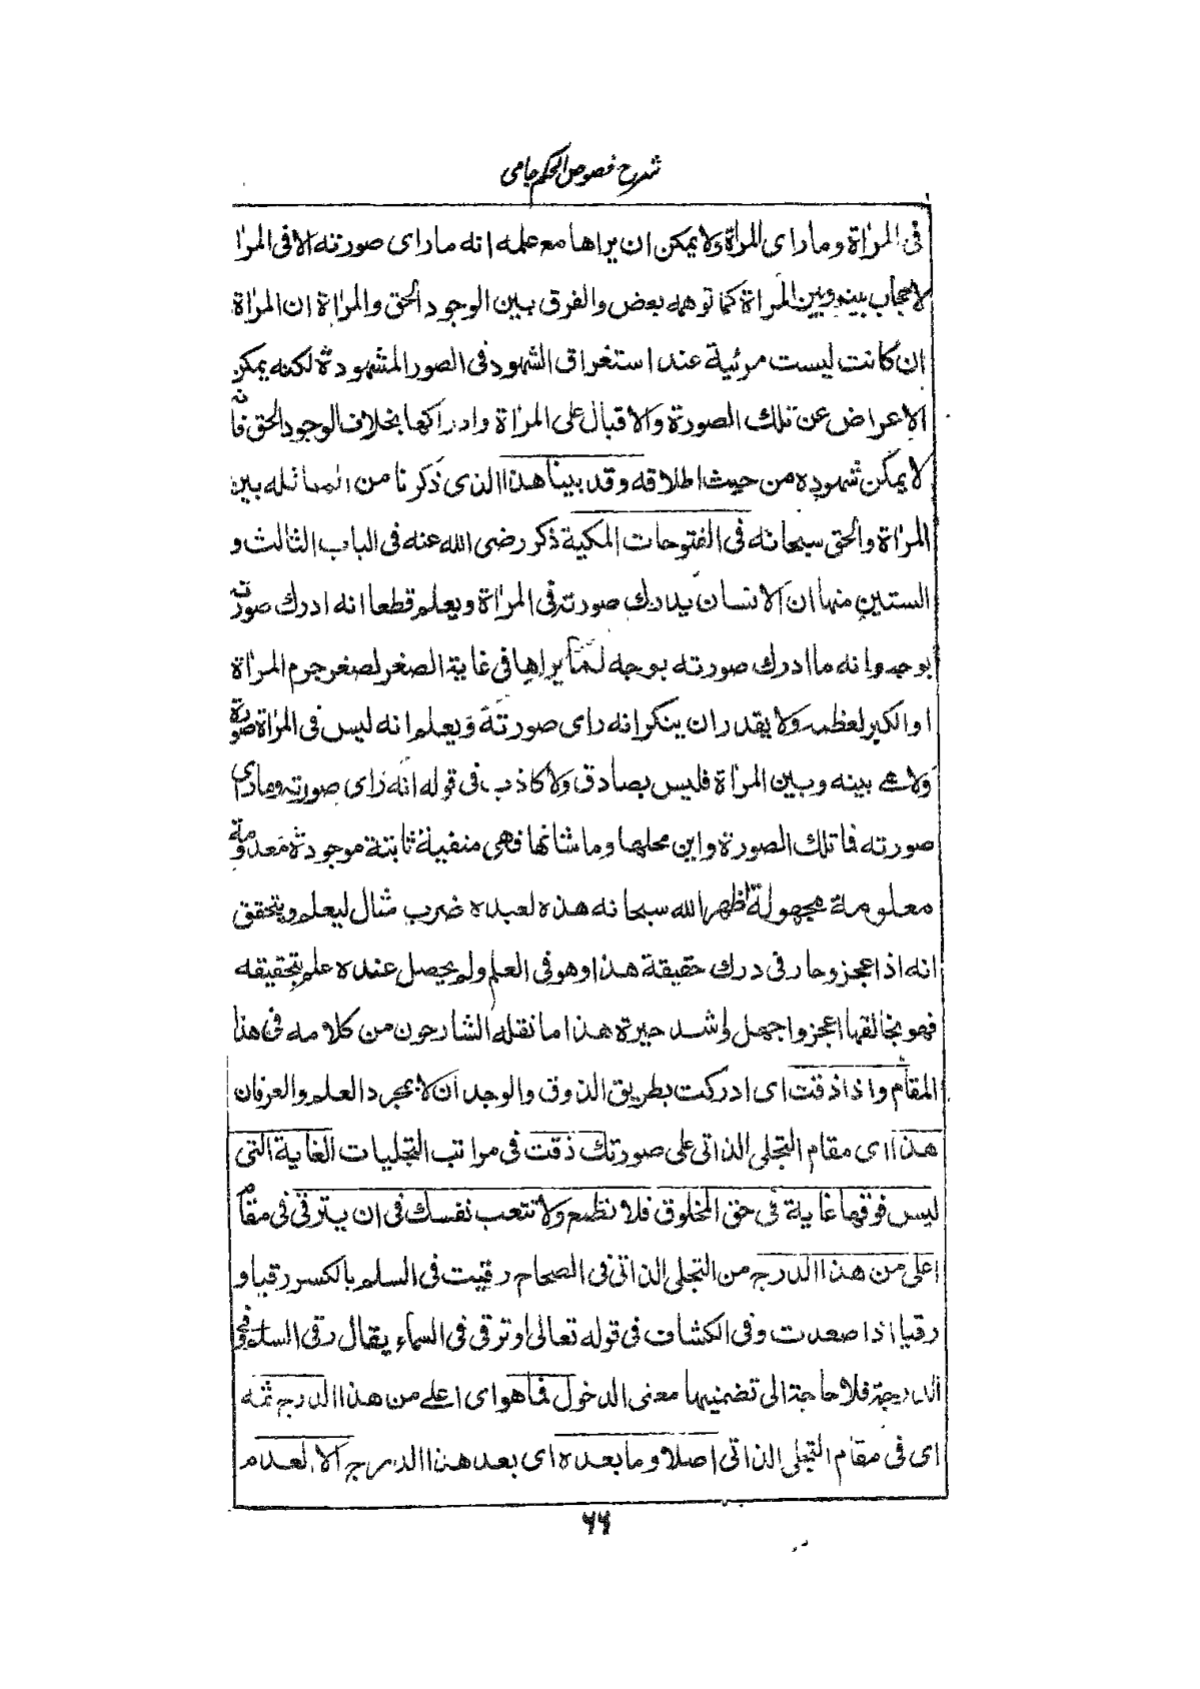 شرح فصوص الحكم جامى
فى المرٰاة وماراى المراة ولا يمكن ان يراها مع علمه انه ماراى صورته الا فى المرٰا
لا حجاب بينه وبين المراة كما توهمه بعض والفرق بين الوجود الحق والمرٰاة ان المرٰاة
ان كانت ليست مرئية عند استغراق الشهود فى الصور المشهودة لكنه يمكن
الاعراض عن تلك الصورة والاقبال على المرٰاة وادراكها بخلاف الوجود الحق فانه
لا يمكن شهوده من حيث اطلاقه وقد بينا هذا الذى ذكرنا من المماثله بين
المرٰاة والحق سبحانه فى الفتوحات المكية ذكر رضى الله عنه فى الباب الثالث و
الستين منها ان الانسان يدرك صورته فى المرٰاة ويعلم قطعا انه ادرك صورته
بوجه وانه ما ادرك صورته بوجه لما يراها فى غاية الصغر لصغر جرم المرٰاة
او الكبر لعظمه ولا يقدر ان ينكر انه راى صورته ويعلم انه ليس فى المرٰاة صورة
ولا هے بينه وبين المرٰاة فليس بصادق ولا كاذب فى قوله انه راى صورته وماراى
صورته فما تلك الصورة واين محلها وما شانها فهى منفية ثابتة موجودة معدومة
معلومة مجهولة اظهر الله سبحانه هذه لعبده ضرب مثال ليعلم ويتحقق
انه اذا عجز وحار فى درك حقيقة هذا وهو فى العلم ولم يحصل عنده علم بتحقيقه
فهو بخالقها اعجز واجهل واشد حيرة هذا ما نقله الشارحون من كلامه فى هذا
المقام واذا ذقت اى ادركت بطريق الذوق والوجدان لا بمجرد العلم والعرفان
هذا اى مقام التجلى الذاتى على صورتك ذقت فى مراتب التجليات الغاية التى
ليس فوقها غاية فى حق المخلوق فلا تطمع ولا تتعب نفسك فى ان يترقى فى مقام
اعلى من هذا الدرج من التجلى الذاتى فى الصحاح رقيت فى السلم بالكسر رقيا و
رقيا اذا صعدت وفى الكشاف فى قوله تعالى او ترقى فى السماء يقال رقى السلم وفى
الدرجة فلا حاجة الى تضمينها معنى الدخول فما هو اى اعلے من هذا الدرج ثمه
اى فى مقام التجلى الذاتى اصلا وما بعده اى بعد هذا الدرج الا العدم
٦٦